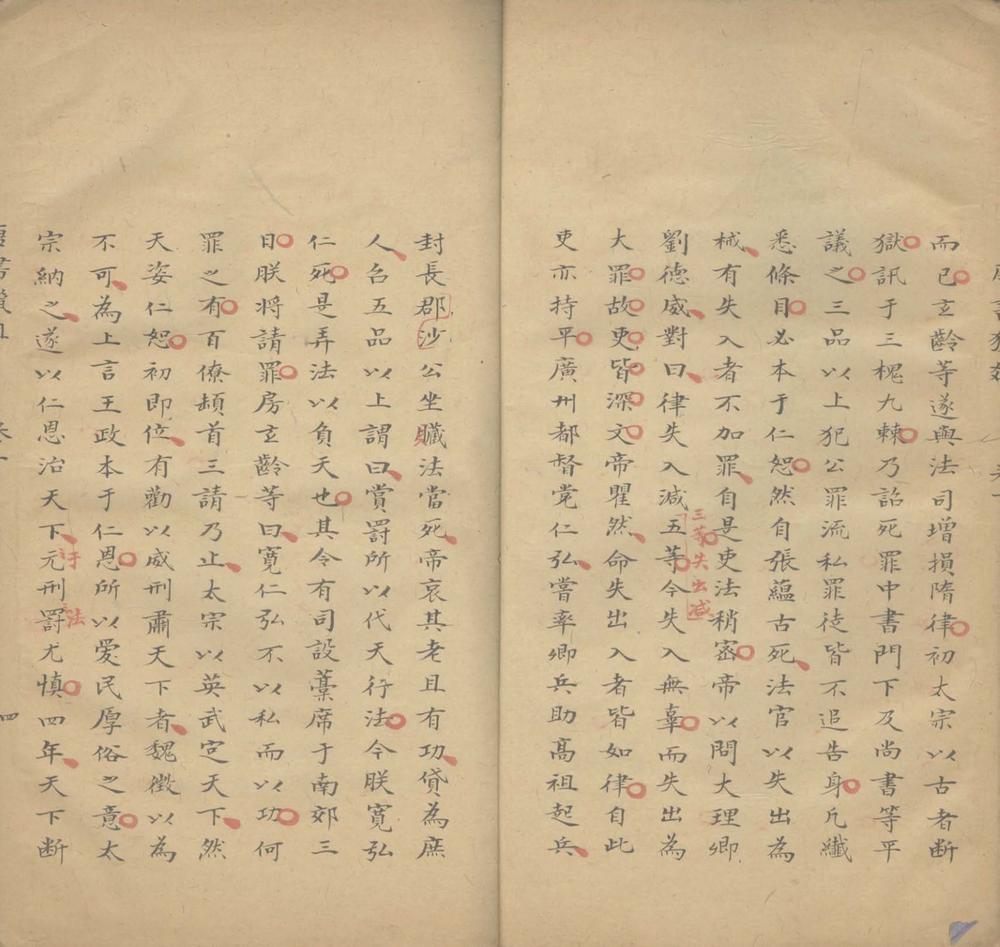 而已玄齡等遂與法司增損隋律初太宗以古者斷
獄訊于三槐九棘乃詔死罪中書門下及尚書等平
議之三品以上犯公罪流私罪徒皆不追告身凡纖
悉條目必本于仁恕然自張蘊古死法官以失出為
械有失入者不加罪自是吏法稍密帝以問大理卿
三等失出减
劉德威對曰律失入減五等今失入無辜而失出為
大罪故吏皆深文帝瞿然命失出入者皆如律自此
吏亦持平廣州都督党仁弘嘗率鄉兵助高祖起兵
封長郡沙公坐贓法當死帝哀其老且有功貸為庶
人召五品以上謂曰賞罰所以代天行法今朕寬弘
仁死是弄法以負天也其令有司設藁席于南郊三
日朕將請罪房玄齡等曰寬仁弘不以私而以功何
罪之有百僚頓首三請乃止太宗以英武定天下然
天姿仁恕初即位有勸以威刑肅天下者魏徵以為
不可為上言王政本于仁恩所以愛民厚俗之意太
宗納之遂以仁恩治天下元刑罸尤慎四年天下斷
于
法
四